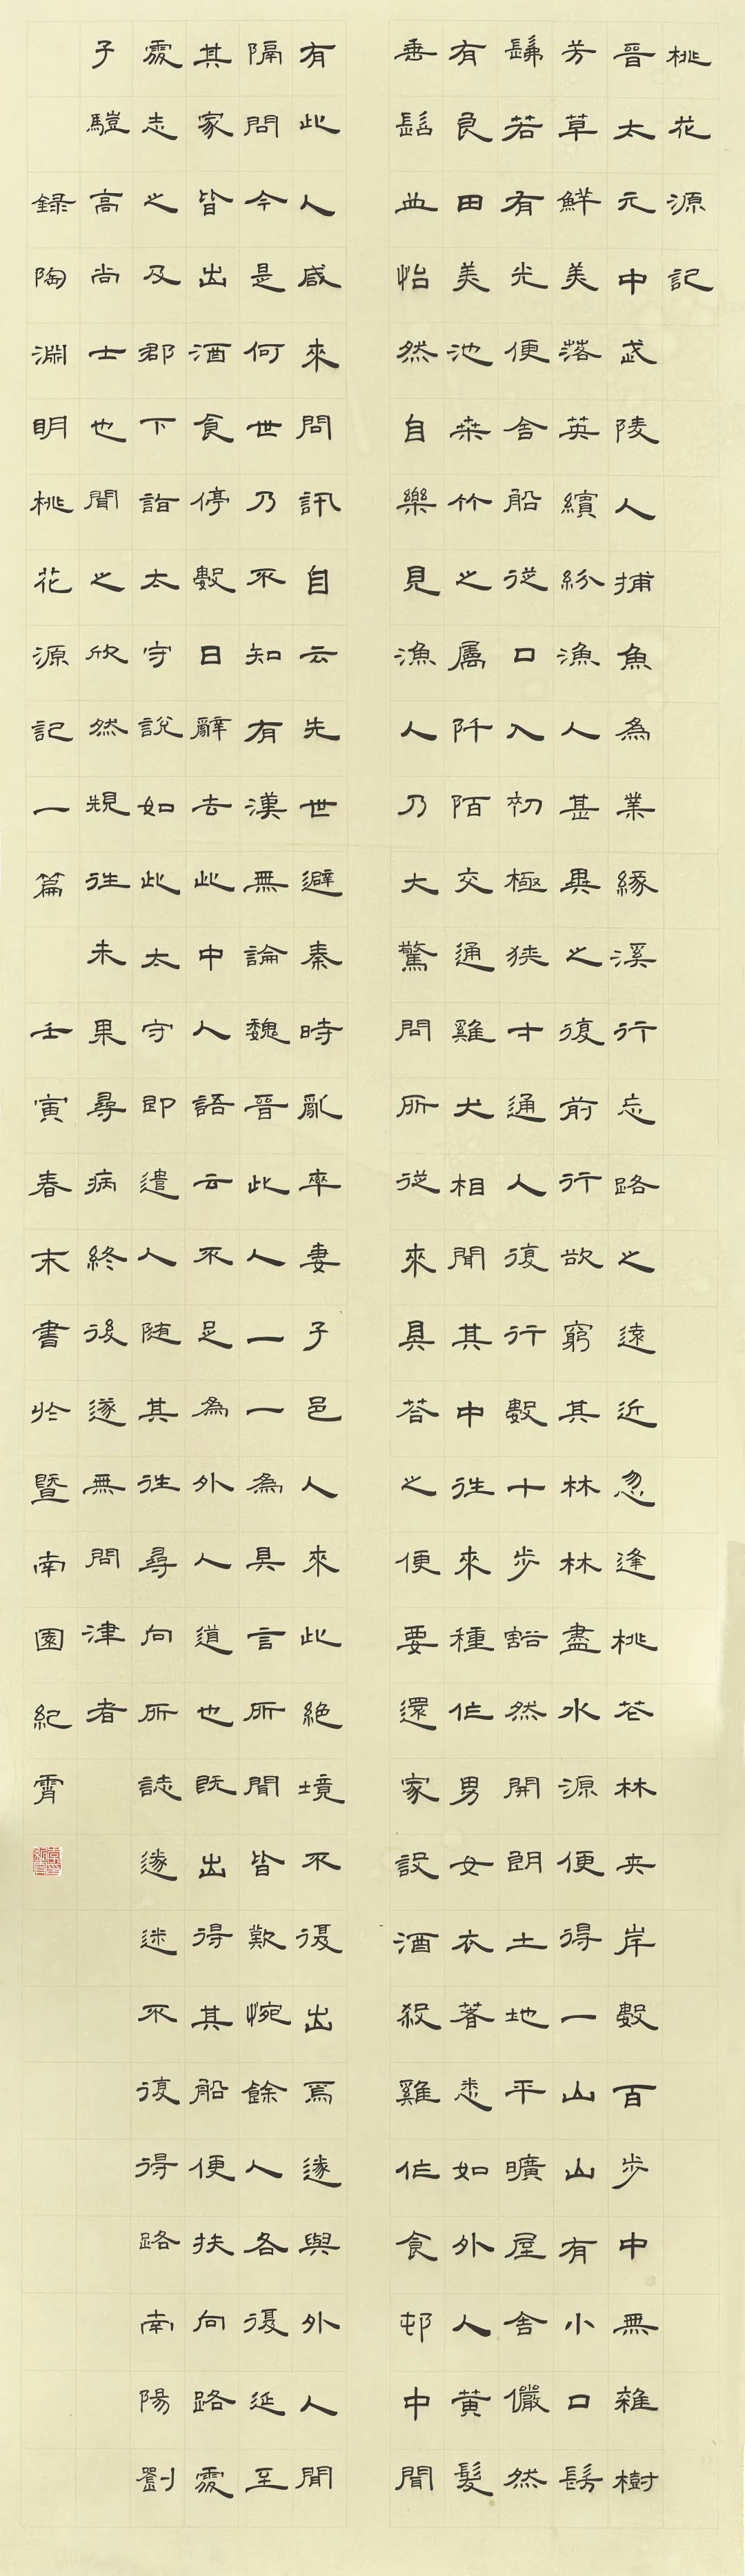 桃花源記
晉太元中武陵人捕魚為業緣溪行忘路之遠近忽逢桃花林夾岸數百步中無雜樹
芳草鮮美落英繽紛漁人甚異之復前行欲窮其林林盡水源便得一山山有小口髣
髴若有光便舍船從口入初極狹才通人復行數十步豁然開朗土地平曠屋舍儼然
有良田美池桑竹之属阡陌交通雞犬相聞其中往來種作男女衣著悉如外人黃髮
垂髫並怡然自樂見漁人乃大驚問所從來具答之便要還家設酒殺雞作食邨中聞
有此人咸來問訊自云先世避秦時亂率妻子邑人來此絕境不復出焉遂與外人間
隔問今是何世乃不知有漢無論魏晉此人一一為具言所聞皆歎惋餘人各復延至
其家皆出酒食停數日辭去此中人語云不足為外人道也既出得其船便扶向路處
處志之及郡下詣太守說如此太守即遣人随其往尋向所誌遂迷不復得路南陽劉
子驥高尚士也聞之欣然規往未果尋病終後遂無問津者
錄陶淵明桃花源記一篇 壬寅春末書於暨南園紀霄